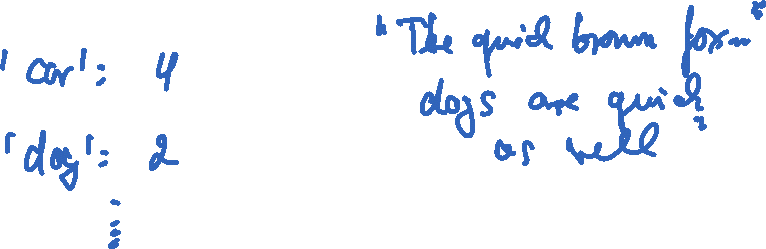 'car': 4
'dog': 2
⋮
"The quick brown fox..."
dogs are quick
as well"